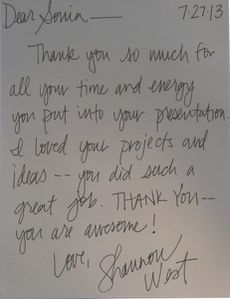 Dear Sonia — 7-27-13
Thank you so much for
all your time and energy
you put into your presentation.
I loved your projects and
ideas -- you did such a
great job. THANK YOU --
you are awesome!
Love, Shannon
West